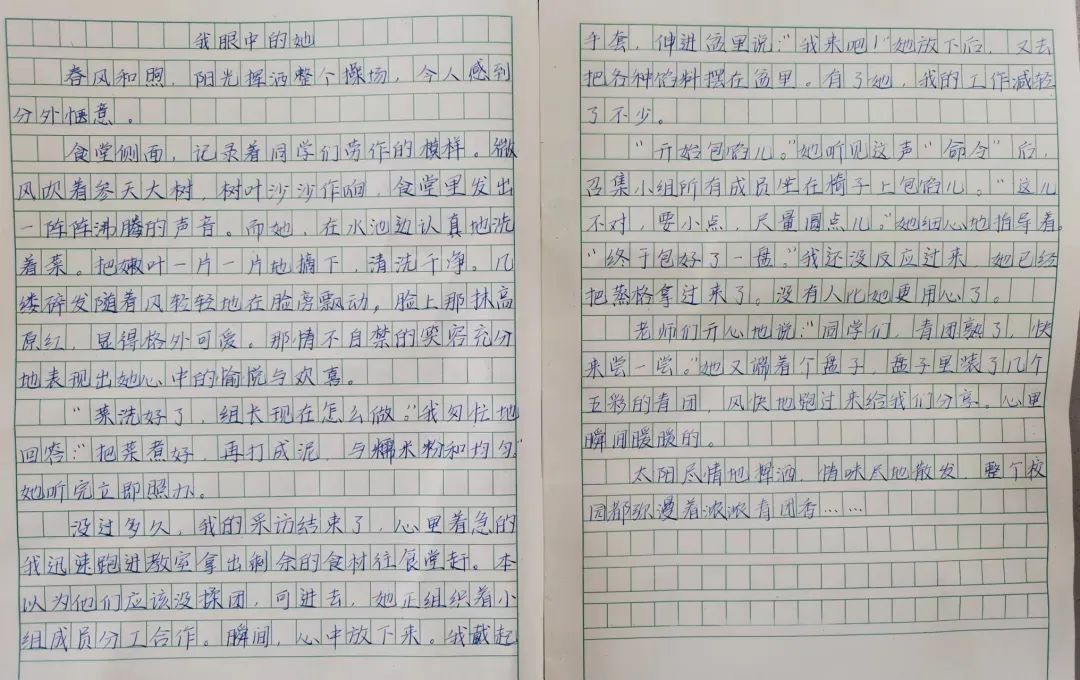 我眼中的她
春风和煦，阳光挥洒整个操场，令人感到
分外惬意。
食堂侧面，记录着同学们劳作的模样。微
风吹着参天大树，树叶沙沙作响，食堂里发出
一阵阵沸腾的声音。而她，在水池边认真地洗
着菜。把嫩叶一片一片地摘下，清洗干净。几
缕碎发随着风轻轻地在脸旁飘动，脸上那抹高
原红，显得格外可爱。那情不自禁的笑容充分
地表现出她心中的愉悦与欢喜。
“菜洗好了，组长现在怎么做。”我匆忙地
回答：“把菜煮好，再打成泥，与糯米粉和均匀。”
她听完立即照办。
没过多久，我的采访结束了，心里着急的
我迅速跑进教室拿出剩余的食材往食堂赶。本
以为他们应该没揉团，可进去，她正组织着小
组成员分工合作。瞬间，心中放下来。我戴起
手套，伸进盆里说：“我来吧！”她放下后，又去
把各种馅料摆在盆里。有了她，我的工作减轻
了不少。
“开始包馅儿。”她听见这声“命令”后，
召集小组所有成员坐在椅子上包馅儿。“这儿
不对，要小点，尽量圆点儿。”她细心地指导着。
“终于包好了一盘。”我还没反应过来，她已经
把蒸格拿过来了。没有人比她更用心了。
老师们开心地说：“同学们，青团熟了，快
来尝一尝。”她又端着个盘子，盘子里装了几个
五彩的青团，风快地跑过来给我们分享。心里
瞬间暖暖的。
太阳尽情地挥洒，情味尽地散发，整个校
园都弥漫着浓浓青团香……